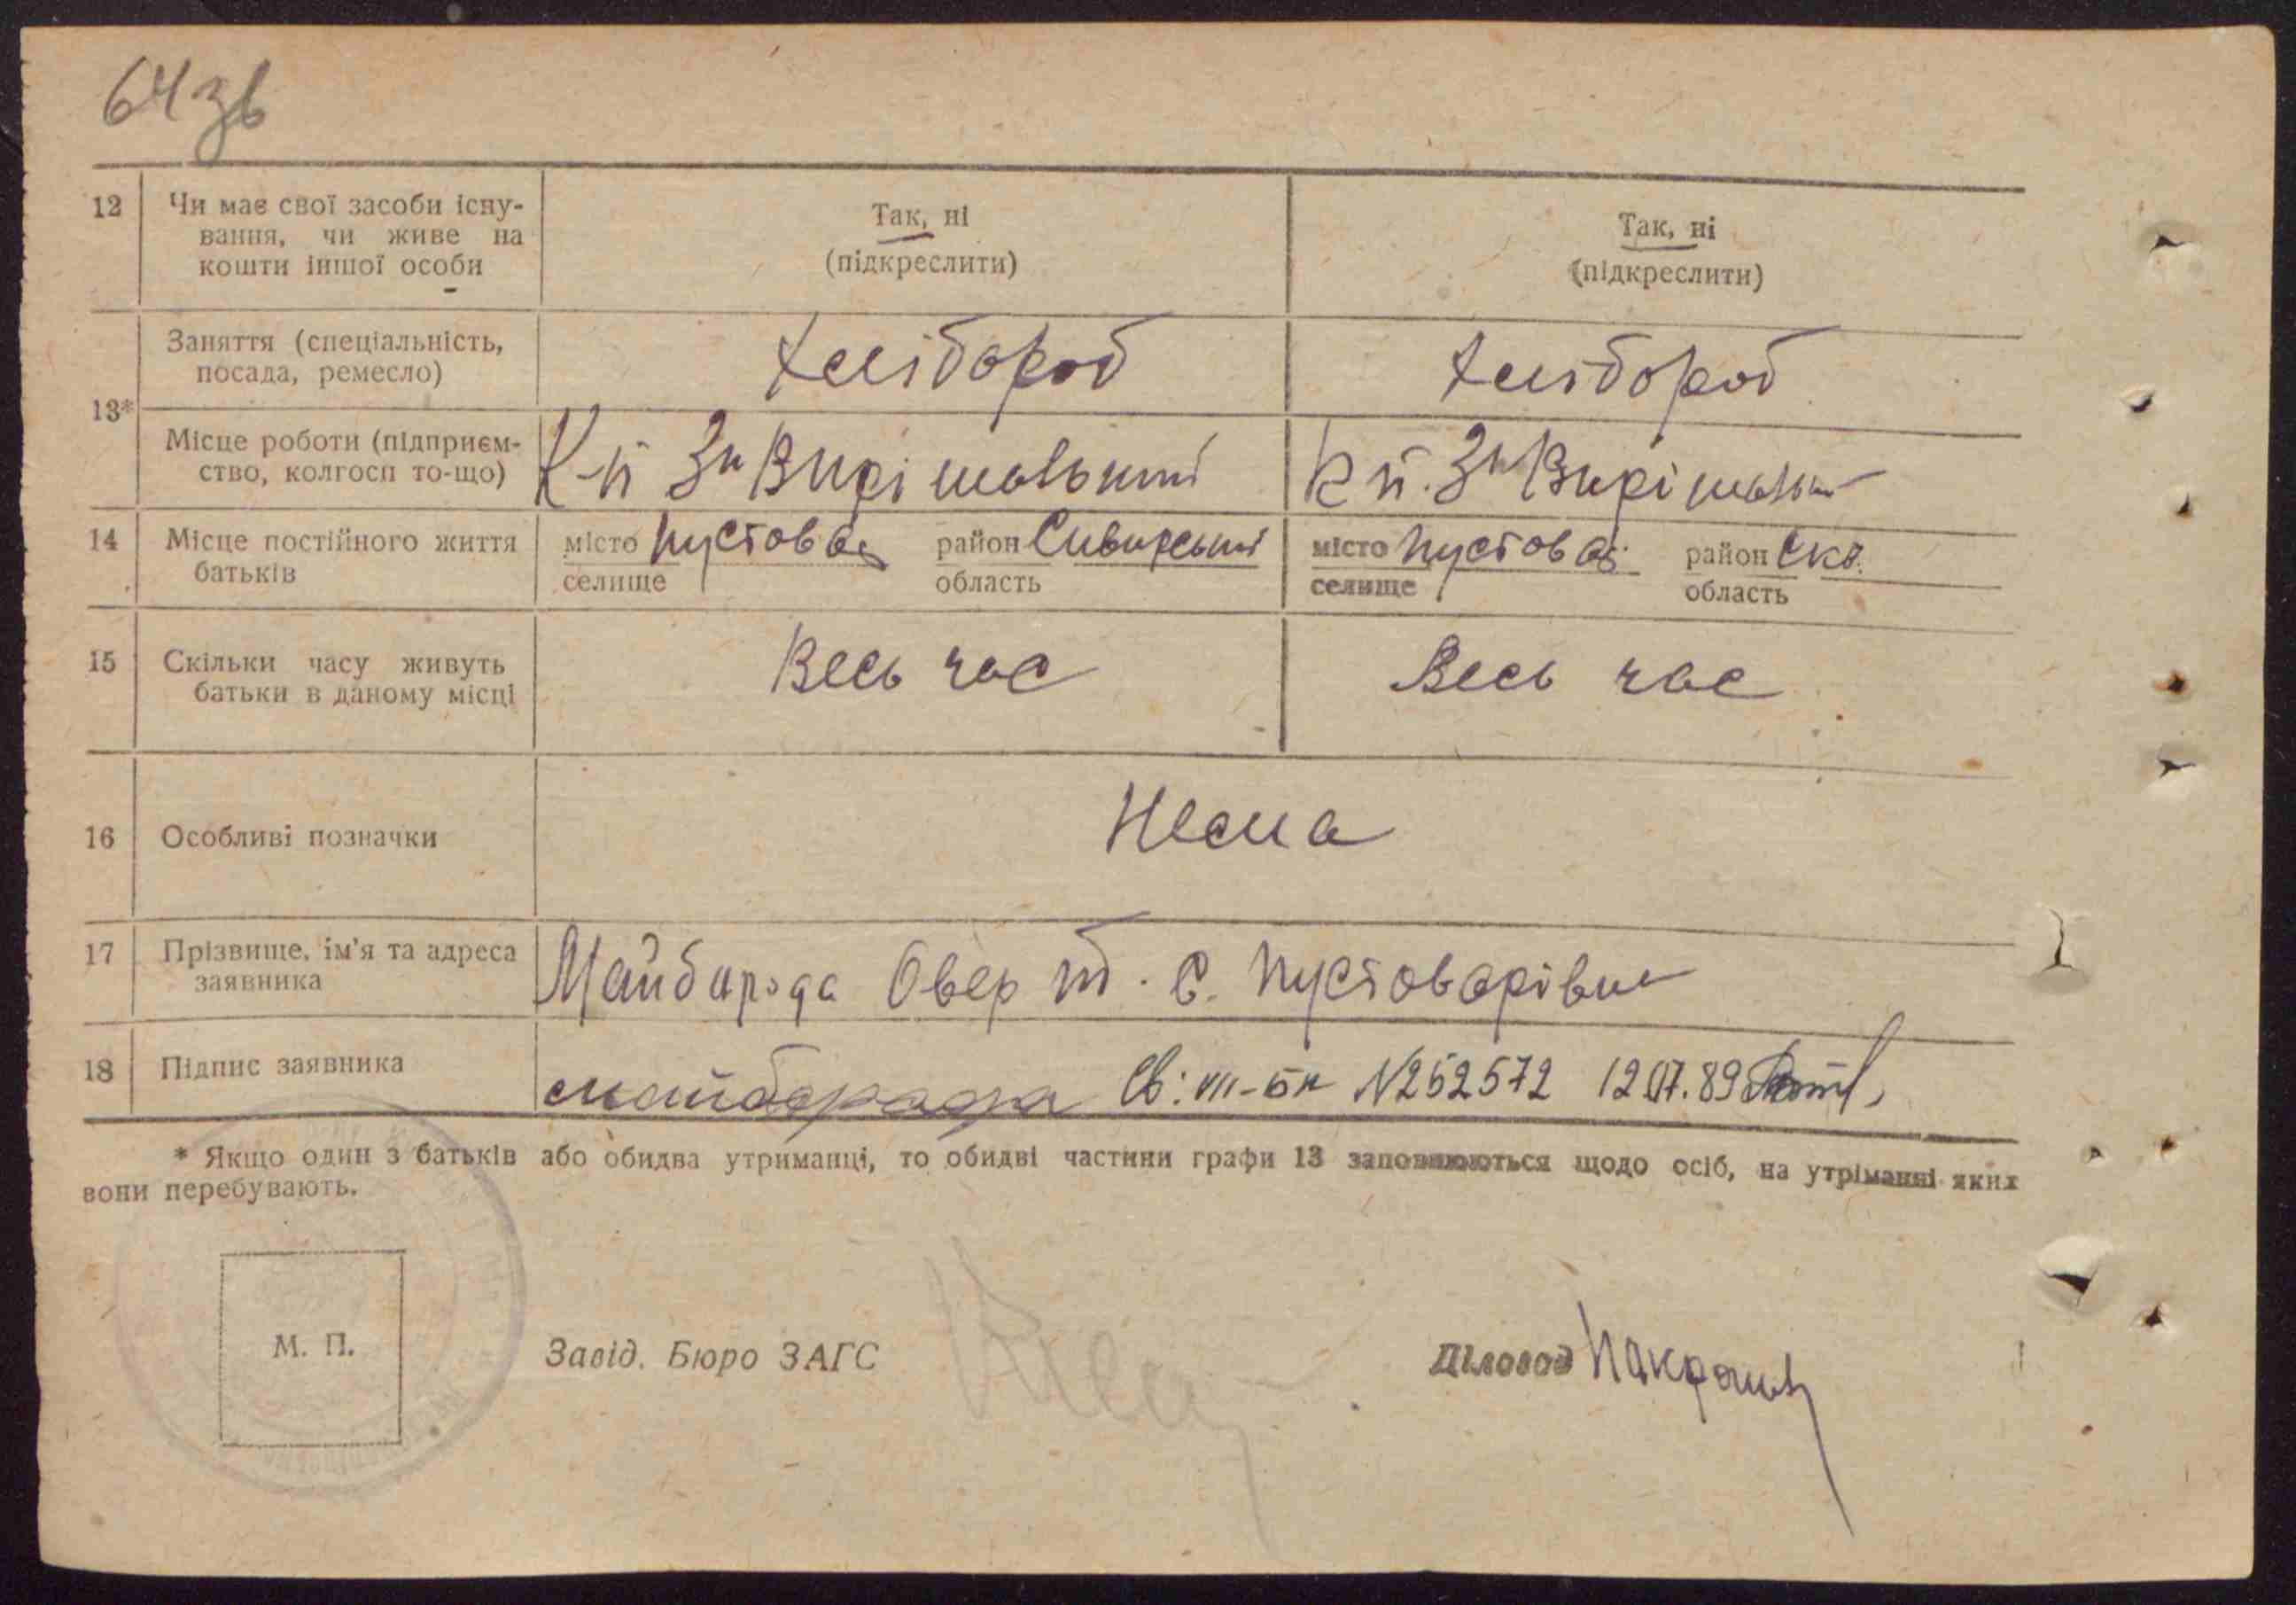 64 зв
12 Чи має свої засоби існу-
вання, чи живе на
кошти іншої особи
Так, ні
(підкреслити)
Так, ні
(підкреслити)
13*
Заняття (спеціальність,
посада, ремесло)
Хлібороб
Хлібороб
Місце роботи (підприєм-
ство, колгосп то-що)
К-п Зн Вирішальний
К п. Зн Вирішальн
14 Місце постійного життя
батьків
місто Пустовар район Сквирський
селище область
місто Пустовар. район Скв.
селище область
15 Скільки часу живуть
батьки в даному місці
Весь час
Весь час
16 Особливі позначки
Нема
17 Прізвище, ім'я та адреса
заявника
Майборода Овер с. Пустоварівка
18 Підпис заявника
майборода Св: VII-БК N252572 12.07.89
* Якщо один з батьків або обидва утриманці, то обидві частини графи 13 заповнюються щодо осіб, на утріманні яких
вони перебувають.
М. П.
Завід. Бюро ЗАГС
Діловод